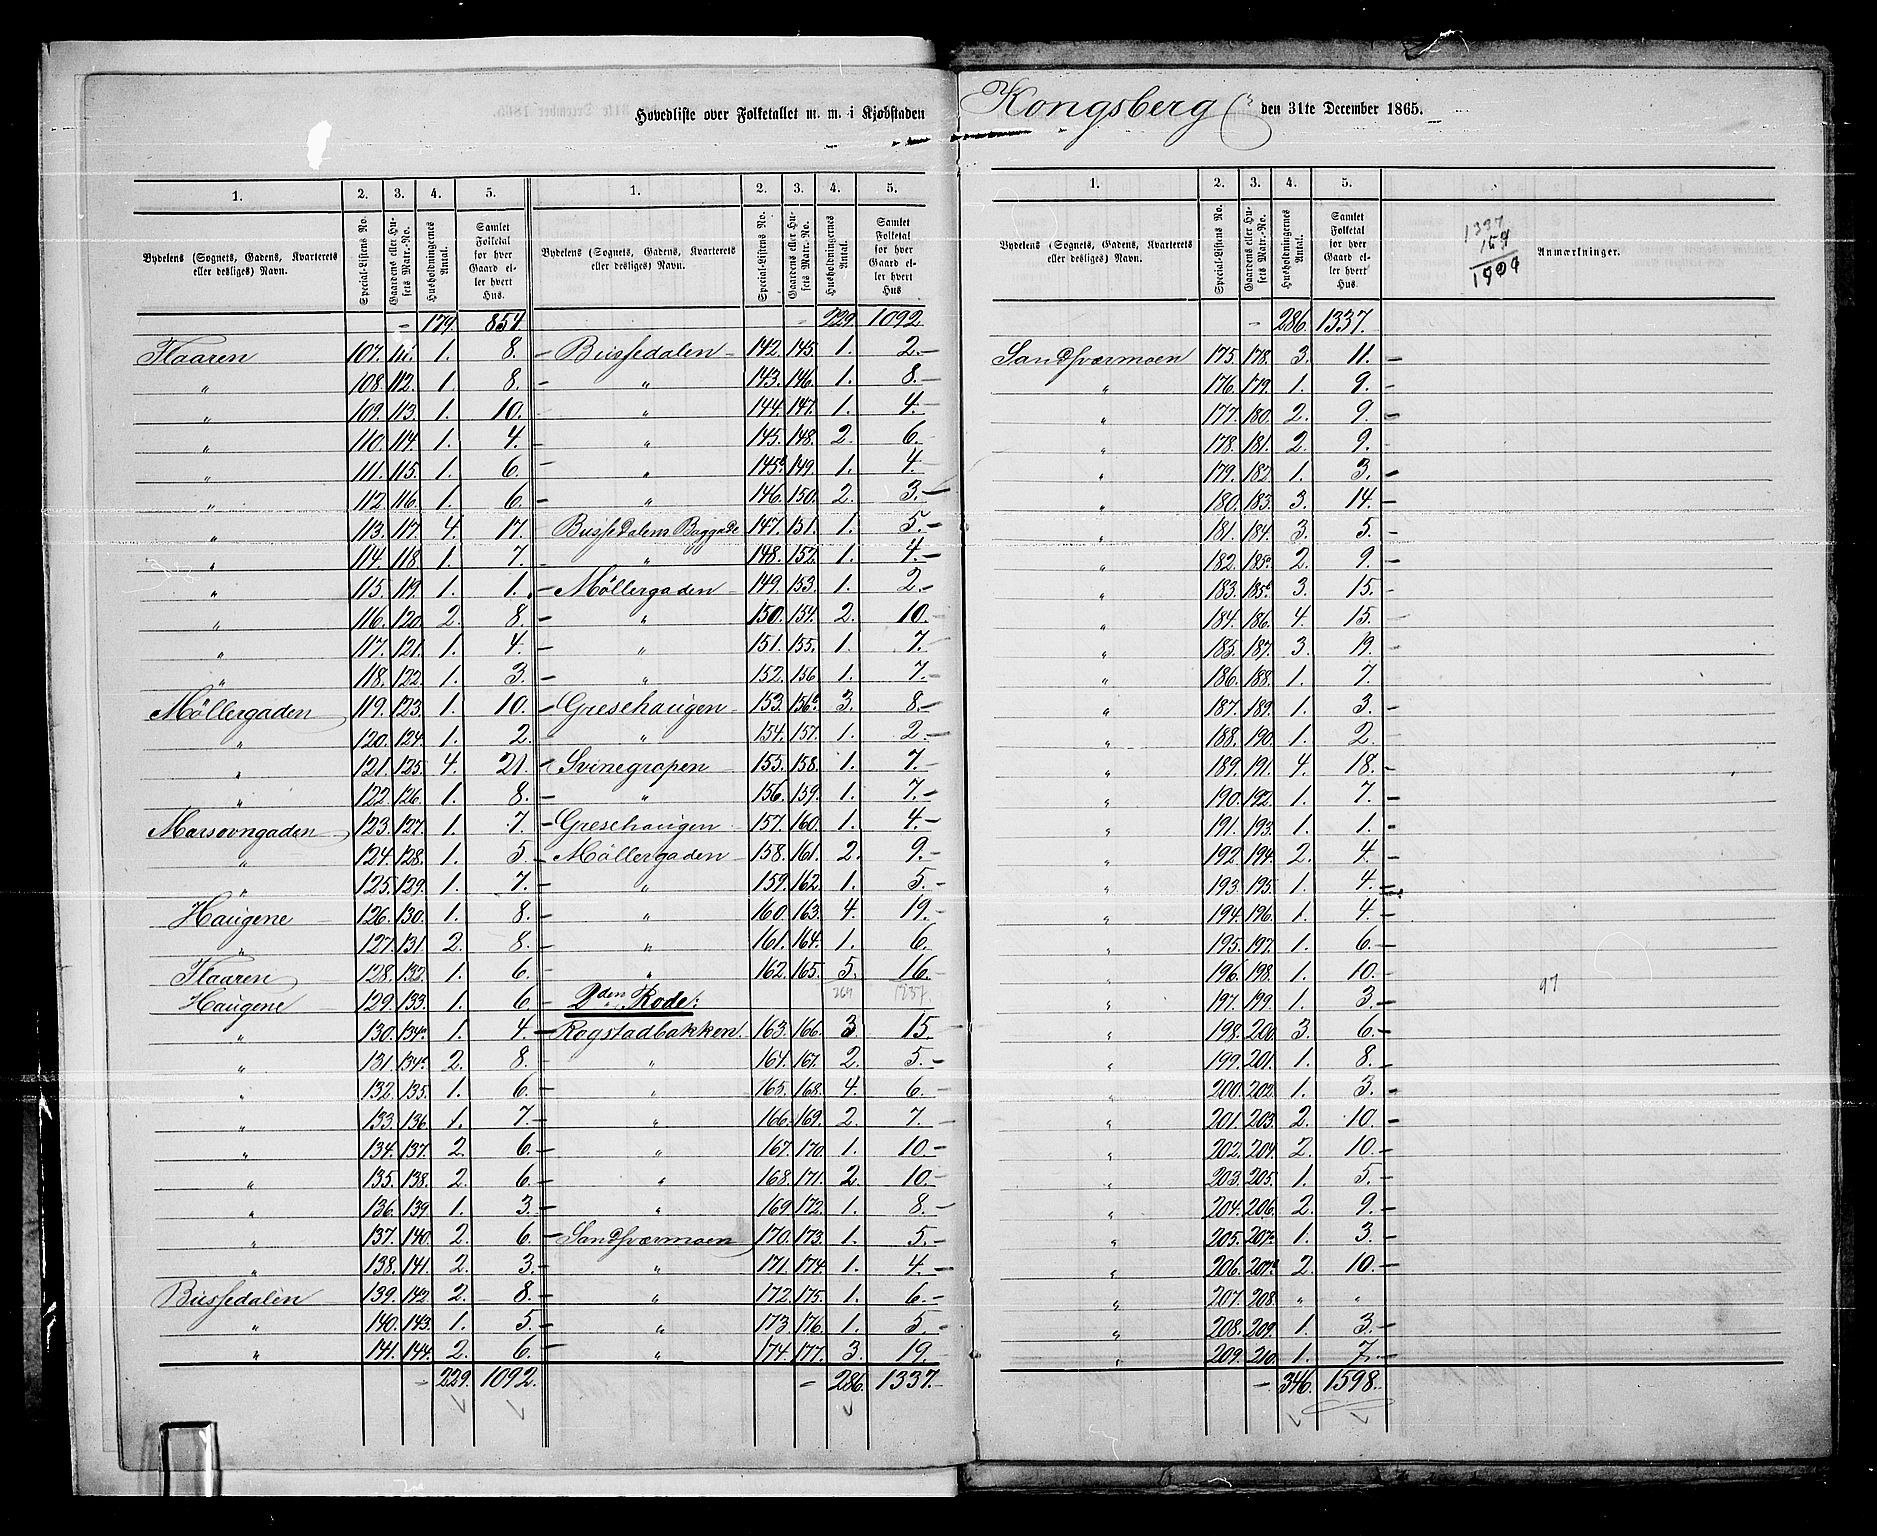 Hovedliste over Folketallet m. m. i Kjøbstaden Kongsberg den 31te December 1865.
1. 2. 3. 4. 5.
Bydelens (Sognets, Gadens, Kvarterets eller desliges) Navn. Special-Listens No. Gaardens eller Husets Matr.-No. Husholdningernes Antal. Samlet Folketal for hver Gaard eller hvert Hus.
- 179. 854
Flaaren 107. 111. 1. 8.
" 108. 112. 1. 8.
" 109. 113. 1. 10.
" 110. 114. 1. 4.
" 111. 115. 1. 6.
" 112 116. 1. 6.
" 113. 117. 4. 17.
" 114. 118. 1. 7.
" 115. 119. 1. 1.
" 116. 120. 2. 8.
" 117. 121. 1. 4.
" 118. 122. 1. 3.
Möllergaden 119. 123. 1. 10.
" 120. 124. 1. 2.
" 121. 125. 4. 21.
" 122. 126. 1. 8.
Marsovngaden 123. 127. 1. 7.
" 124. 128. 1. 5.
" 125. 129. 1. 7.
Haugene 126. 130. 1. 8.
" 127. 131. 2. 8.
Flaaren 128. 132. 1. 6.
Haugene 129. 133. 1. 6.
" 130. 134a 1. 4.
" 131. 134b 2. 8.
" 132. 135. 1. 6.
" 133. 136. 1. 7.
" 134. 137. 2. 6.
" 135. 138. 2. 6.
" 136. 139 1. 3.
" 137. 140. 2. 6.
" 138. 141. 2. 3.
Bussedalen 139. 142. 2. 8.
" 140. 143. 1. 5.
" 141. 144. 2. 6.
- 229. 1092.
1. 2. 3. 4. 5.
Bydelens (Sognets, Gadens, Kvarterets eller desliges) Navn. Special-Listens No. Gaardens eller Husets Matr.-No. Husholdningernes Antal. Samlet Folketal for hver Gaard eller hvert Hus
- 229 1092
Bussedalen 142. 145. 1. 2.
" 143. 146. 1. 8.
" 144. 147. 1. 4.
" 145. 148. 2. 6.
" 145b 149. 1. 4.
" 146. 150. 2. 3.
Bussedalens Baggade 147. 151. 1. 5.
" 148. 152. 1. 4.
Möllergaden 149. 153. 1. 2.
" 150. 154. 2. 10.
" 151. 155. 1. 7.
" 152. 156 1. 7.
Gresehaugen 153. 156b 3. 8.
" 154. 157. 1. 2.
Svinegropen 155. 158. 1. 7.
" 156. 159. 1. 7.
Gresehaugen 157. 160. 1. 4.
Möllergaden 158. 161. 2. 9.
" 159. 162. 1. 5.
" 160. 163. 4. 19.
" 161. 164. 1. 6.
" 162. 165. 5. 16.
2den Rode: 264 1237.
Rogstadbakken. 163. 166. 3 15.
" 164. 167. 2. 5.
" 165. 168. 4. 6.
" 166. 169. 2. 7.
" 167. 170. 1. 10.
" 168. 171. 2. 10.
" 169 172. 1. 8.
Sandsværmoen 170. 173. 1. 5.
" 171. 174. 1. 4.
" 172. 175. 1. 6.
" 173. 176. 1. 5.
" 174. 177. 3. 19.
- 286. 1337.
1. 2. 3. 4. 5.
Bydelens (Sognets, Gadens, Kvarterets eller desliges) Navn. Special-Listens No. Gaardens eller Husets Matr.-No. Husholdningernes Antal. Samlet Folketal for hver Gaard eller hvert Hus. Anmærkninger.
1337
- 286. 1337.
Sandsværmoen 175. 178. 3. 11.
" 176. 179. 1. 9.
" 177. 180. 2. 9.
" 178. 181. 2. 9.
" 179. 182. 1. 3.
" 180. 183. 3. 14.
" 181. 184. 3. 5.
" 182. 185a 2. 9.
" 183. 185b 3. 15.
" 184. 186. 4. 15.
" 185. 187. 3. 19.
" 186. 188. 1. 7.
" 187. 189. 1. 3.
" 188. 190. 1. 2.
" 189. 191. 4. 18.
" 190. 192. 1. 7.
" 191. 193. 1. 1.
" 192. 194. 2. 4.
" 193. 195. 1. 4.
" 194. 196. 1. 4.
" 195. 197. 1. 6.
" 196. 198. 1. 10.
" 197. 199. 1. 3. 97
" 198. 200. 3. 6.
" 199. 201. 1. 8.
" 200. 202. 1. 3.
" 201. 203. 2. 10.
" 202. 204. 2. 10.
" 203. 205. 1. 5.
" 204. 206. 2. 9.
" 205. 207a 1. 3.
" 206. 207b 2. 10.
" 207. 208. " "
" 208. 209. 1. 3.
" 209. 210. 1. 7.
- 346. 1598.